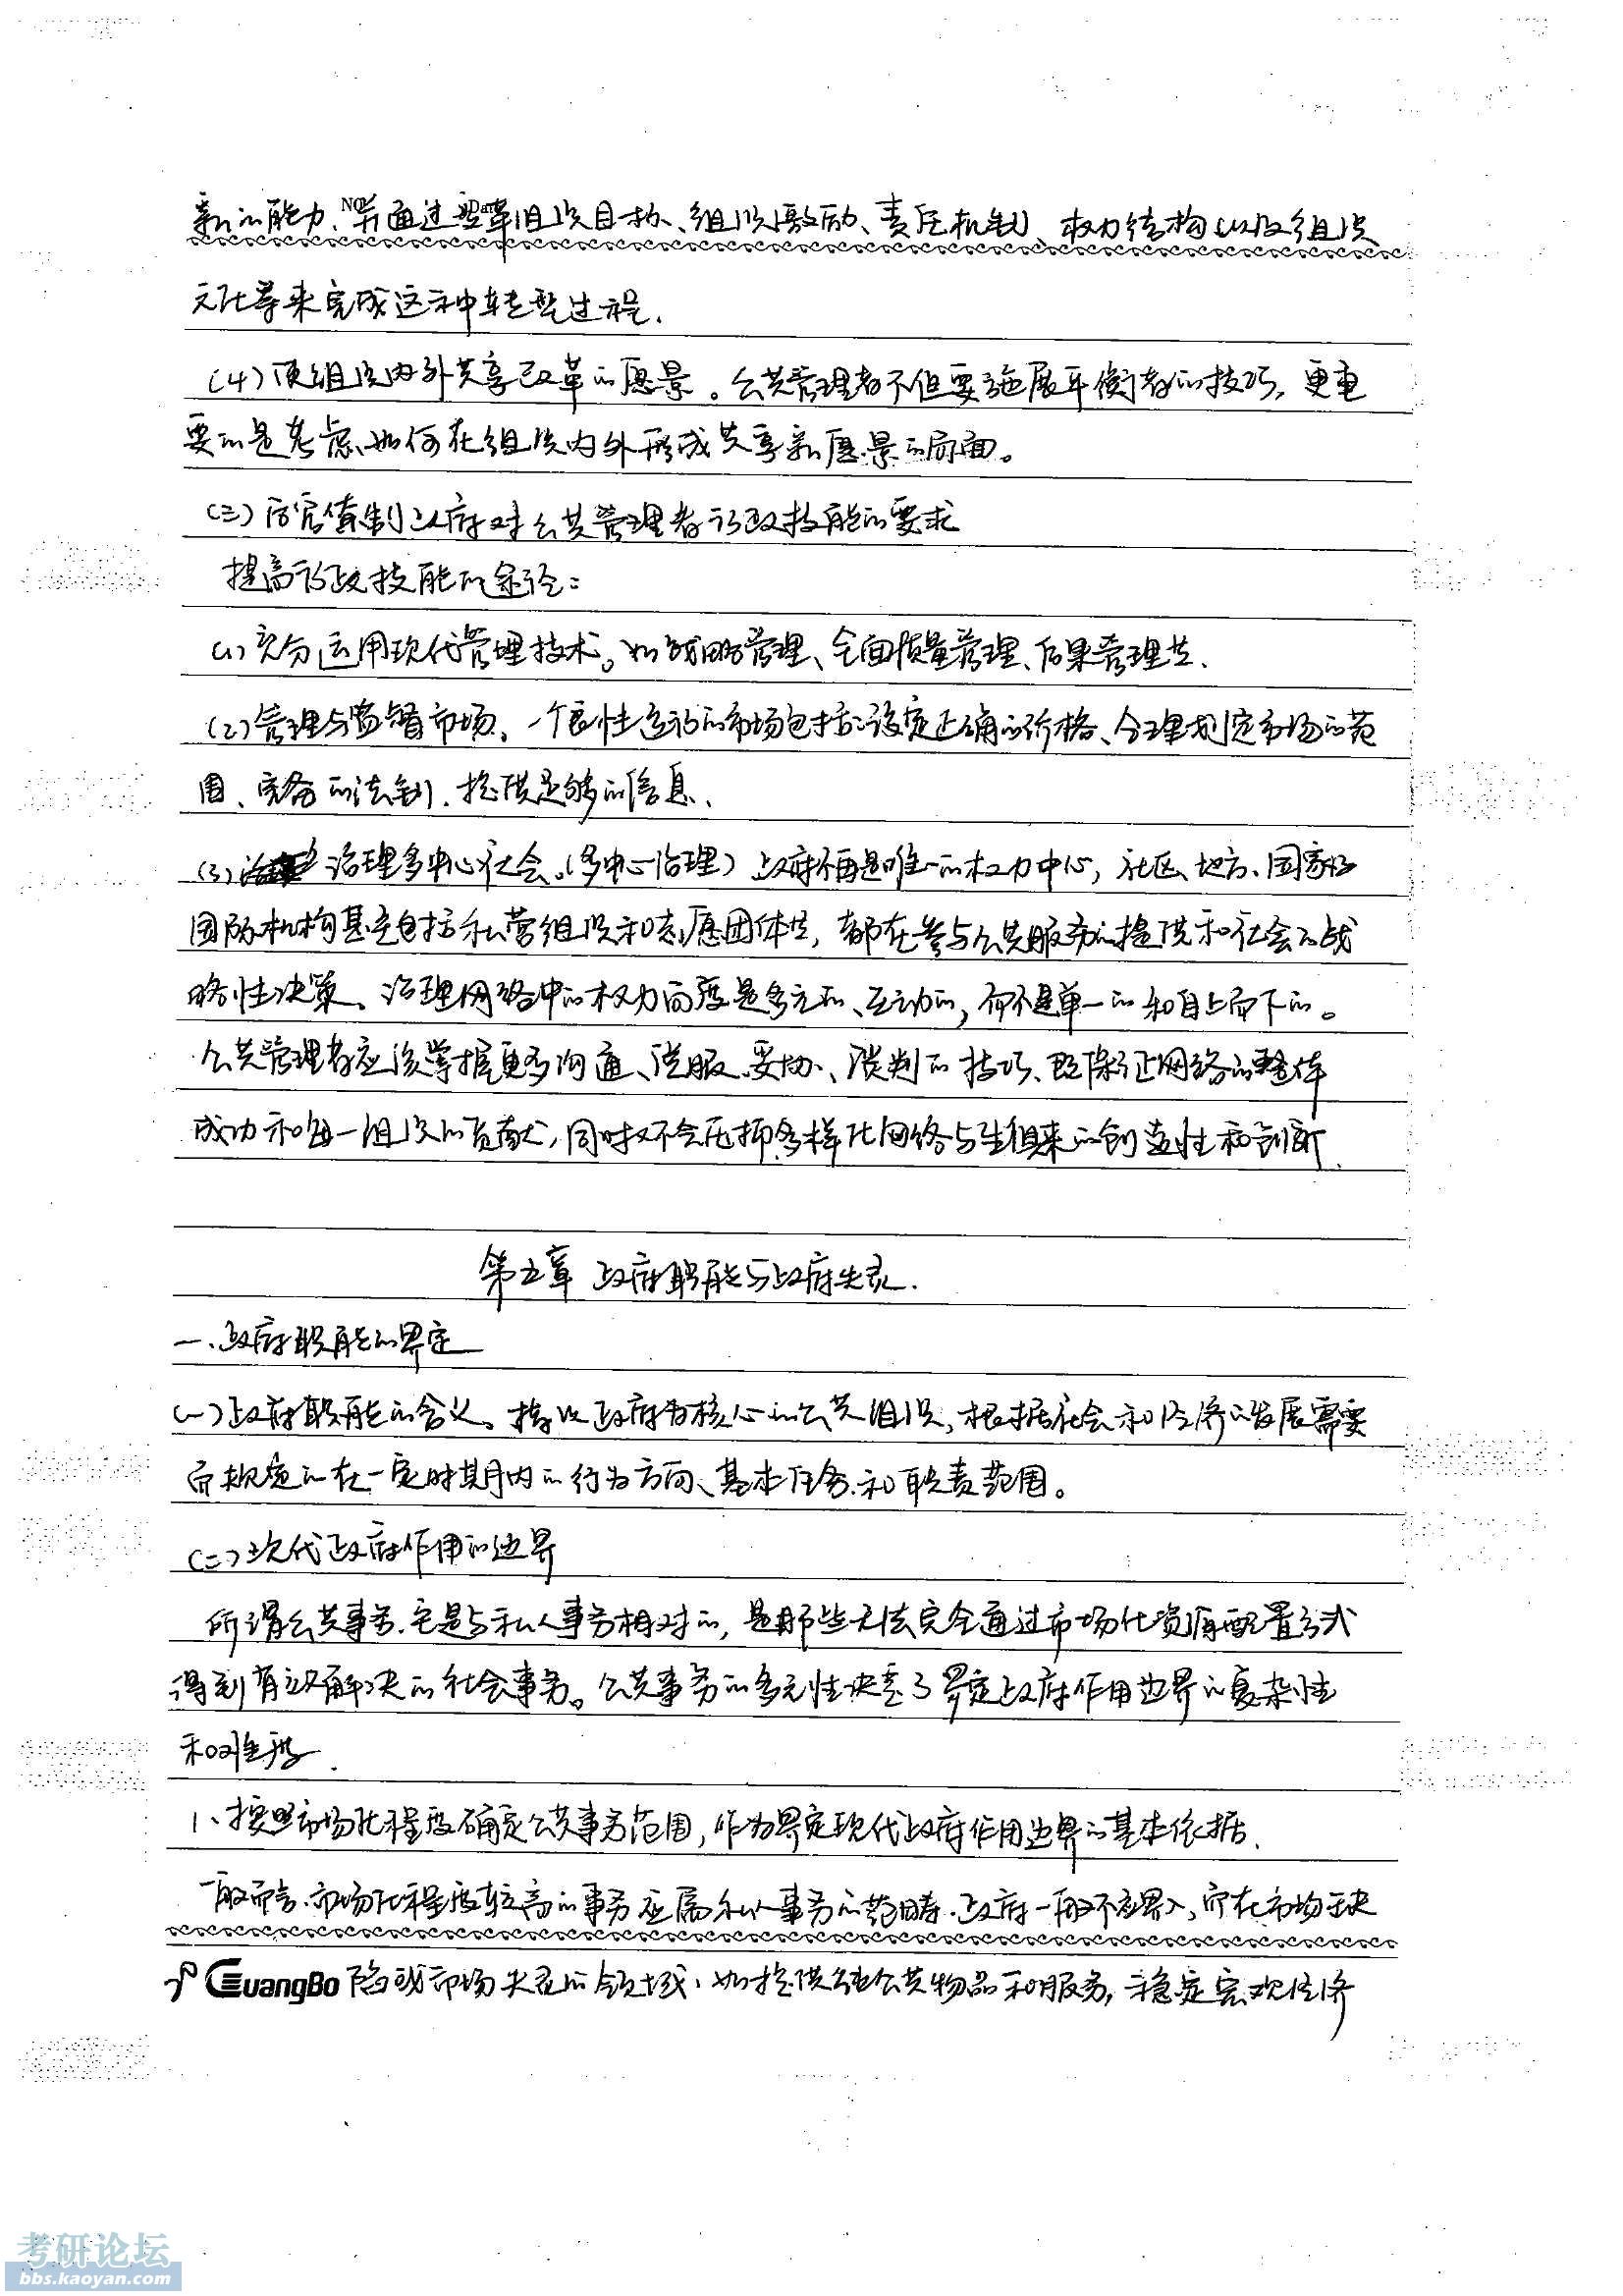 新的能力、并通过变革组织目标、组织激励、责任机制、权力结构以及组织
NO
Date
文化等来完成这种转型过程.
(4)使组织内外共享改革的愿景。公共管理者不但要施展平衡者的技巧，更重
要的是考虑如何在组织内外形成共享新愿景的局面。
(三)后官僚制政府对公共管理者行政技能的要求
提高行政技能的途径：
(1)充分运用现代管理技术。如战略管理、全面质量管理、后果管理等.
(2)管理与监督市场、一个良性运行的市场包括：设定正确的价格、合理划定市场的范
围、完备的法制、提供足够的信息、
(3) 治理多中心社会。(多中心治理)政府不再是唯一的权力中心，社区、地方、国家和
国际机构甚至包括私营组织和志愿团体等，都在参与公共服务的提供和社会的战
略性决策、治理网络中的权力向度是多元的、互动的，而不是单一的和自上而下的。
公共管理者应该掌握更多沟通、说服、妥协、谈判的技巧、既保证网络的整体
成功和每一组织的贡献，同时又不会压抑多样化网络与生俱来的创造性和创新.
第五章 政府职能与政府失灵.
一、政府职能的界定
(一)政府职能的含义、指以政府为核心的公共组织，根据社会和经济的发展需要
而规定的在一定时期内的行为方向、基本任务和职责范围。
(二)现代政府作用的边界
所谓公共事务、它是与私人事务相对的，是那些无法完全通过市场化资源配置方式
得到有效解决的社会事务。公共事务的多元性决定了界定政府作用边界的复杂性
和难度.
1、按照市场化程度确定公共事务范围，作为界定现代政府作用边界的基本依据.
一般而言、市场化程度较高的事务应属私人事务的范畴.政府一般不应界入，而在市场缺
GuangBo 陷或市场失灵的领域、如提供纯公共物品和服务，稳定宏观经济
考研论坛
bbs.kaoyan.com